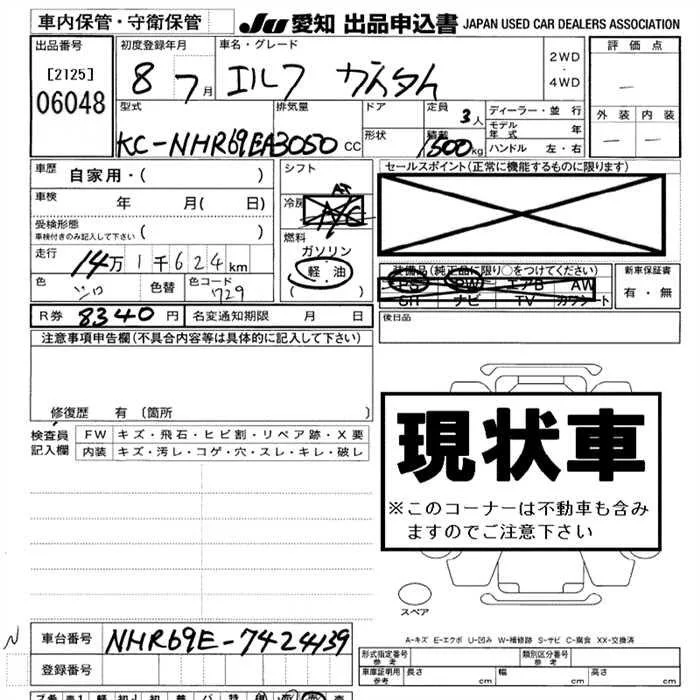 車内保管・守衛保管
JU 愛知 出品申込書 JAPAN USED CAR DEALERS ASSOCIATION
出品番号
[2125]
06048
初度登録年月
8 7月
車名・グレード
エルフ
2WD
・
4WD
評価点
―
外装 内装
― ―
型式
KC-NHR69EA
排気量
3050 cc
ドア
形状
定員 3人
積載 1500kg
ディーラー・並行
モデル年式 年
ハンドル 左・右
車歴 自家用・( )
車検 年 月( 日)
受検形態
車検付きのみ記入して下さい ( )
走行 14万1千624km
色 シロ 色替 色コード 729
R券 8340円 名変通知期限 月 日
シフト
冷房 AC
燃料
ガソリン
・
軽油
( )
セールスポイント(正常に機能するものに限ります)
装備品(純正品に限り○をつけてください)
PS PW エアB AW
SR ナビ TV カワシート
新車保証書
有・無
後日品
注意事項申告欄(不具合内容等は具体的に記入して下さい)
修復歴 有〔箇所 〕
検査員記入欄
FW キズ・飛石・ヒビ割・リペア跡・X要
内装 キズ・汚レ・コゲ・穴・スレ・キレ・破レ
現状車
※このコーナーは不動車も含み
ますのでご注意下さい
スペア
A-キズ E-エクボ U-凹み W-補修跡 S-サビ C-腐食 XX-交換済
車台番号 NHR69E-7424139
登録番号
形式指定番号 参考
類別区分番号 参考
車庫証明用 参考 長さ cm 幅 cm 高さ cm